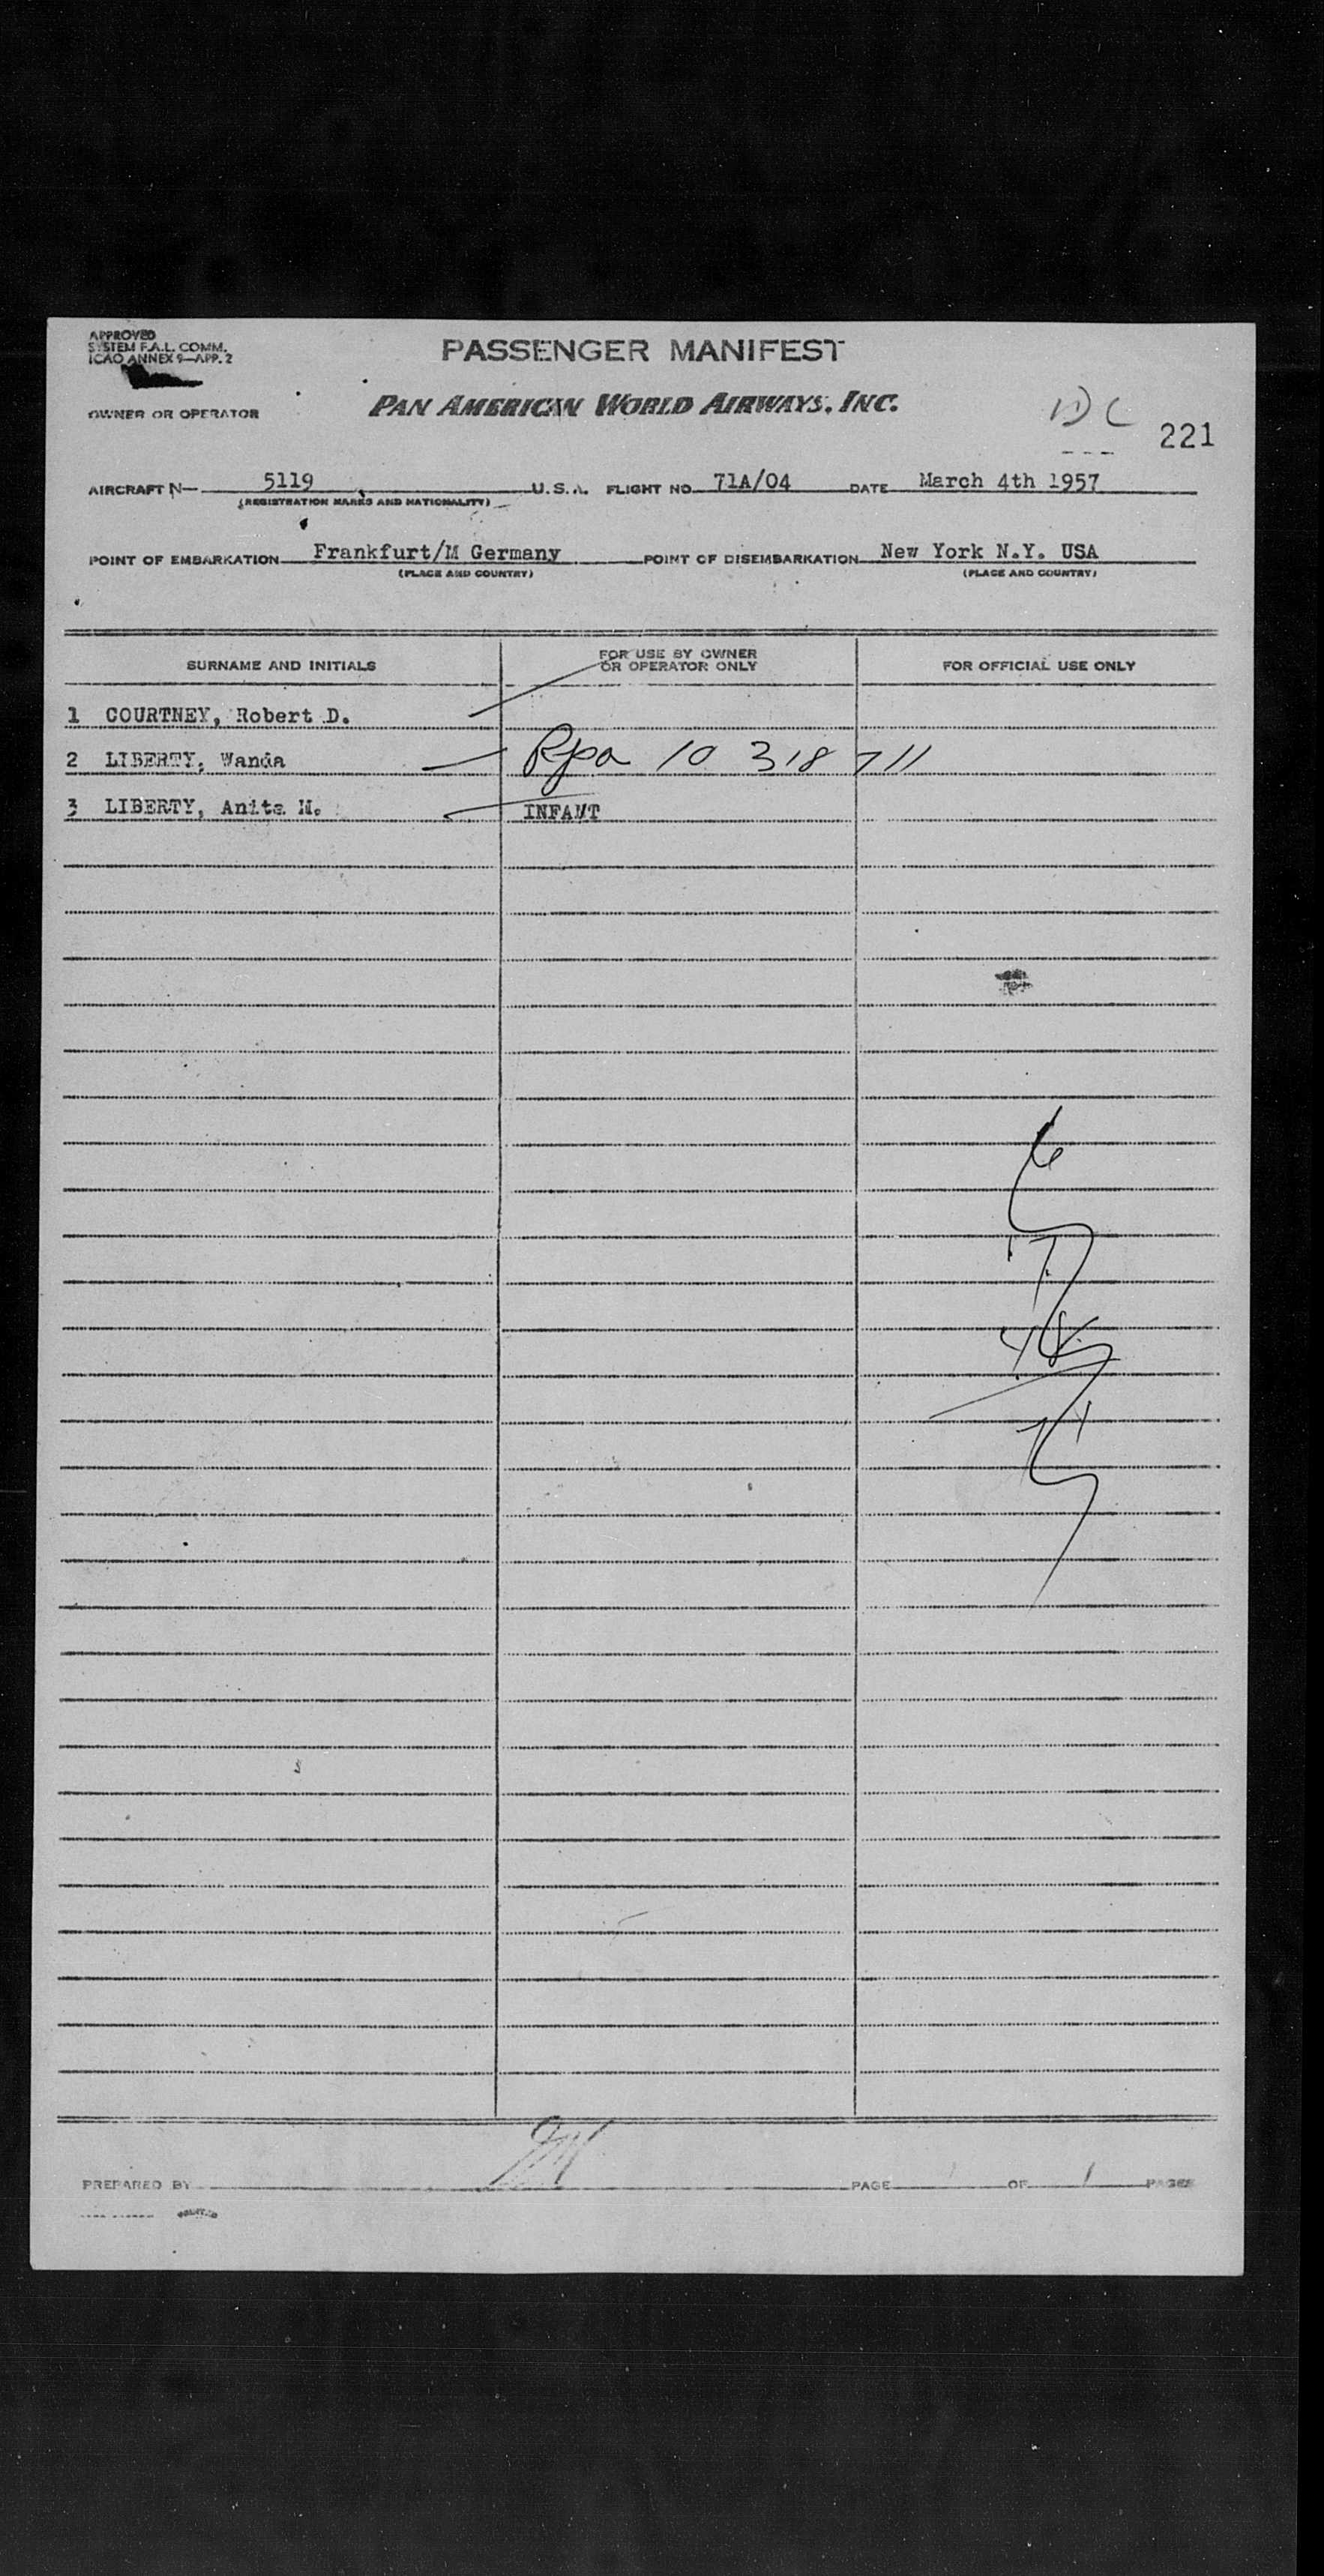 APPROVED
SYSTEM F.A.L. COMM.
ICAO ANNEX 9—APP. 2
PASSENGER MANIFEST
OWNER OR OPERATOR
PAN AMERICAN WORLD AIRWAYS, INC.
221
AIRCRAFT N— 5119 U.S.A. FLIGHT NO. 71A/04 DATE March 4th 1957
(REGISTRATION MARKS AND NATIONALITY)
POINT OF EMBARKATION Frankfurt/M Germany POINT OF DISEMBARKATION New York N.Y. USA
(PLACE AND COUNTRY) (PLACE AND COUNTRY)
SURNAME AND INITIALS FOR USE BY OWNER OR OPERATOR ONLY FOR OFFICIAL USE ONLY
1 COURTNEY, Robert D.
2 LIBERTY, Wanda 10 318 711
3 LIBERTY, Anita M. INFANT
PREPARED BY PAGE OF 1 PAGES